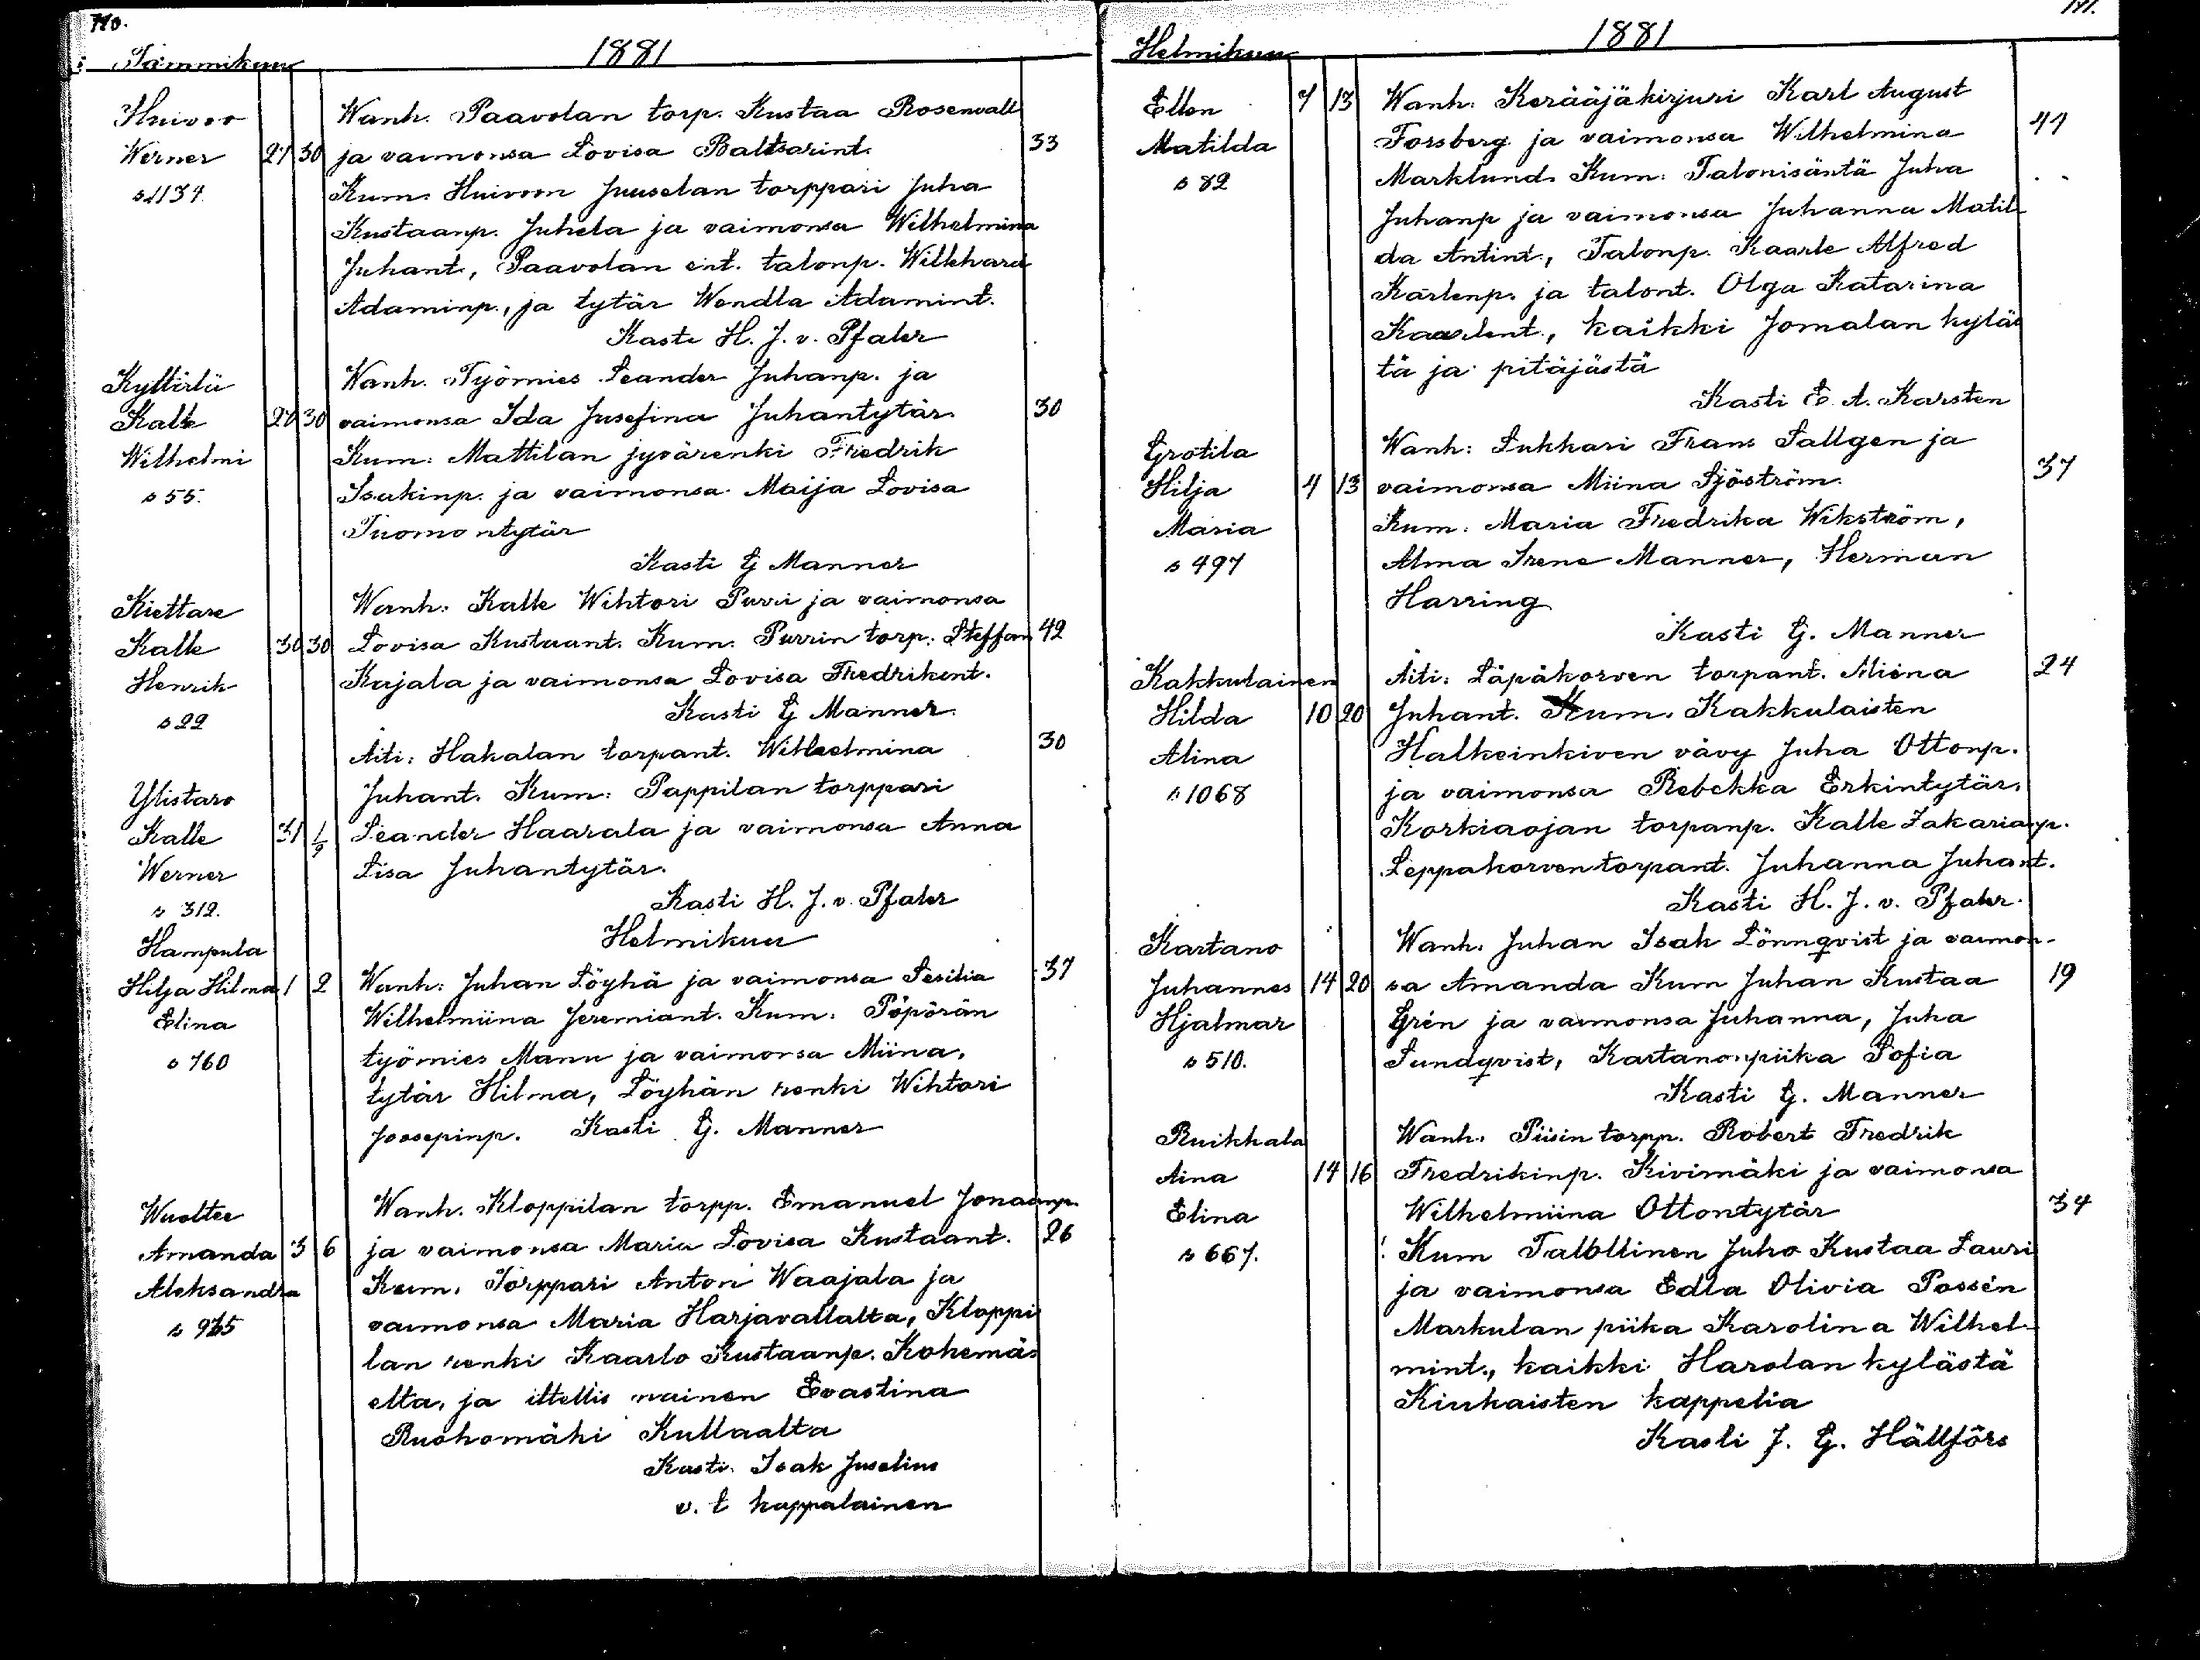 110.
Tammikuu
1881
Huivoo
Werner 27 30
s 1134.
Wanh. Paavolan torp. Kustaa Rosenvall
ja vaimonsa Lovisa Baltsarint. 33
Kum. Huivoon Juuselan torppari Juha
Kustaanp. Juhela ja vaimonsa Wilhelmina
Juhant., Paavolan ent. talonp. Wilkhard
Adaminp., ja tytär Wendla Adamint.
Kasti H. J. v. Pfaler
Kyttälä
Kalle 28 30
Wilhelmi
s 55.
Wanh. Työmies Leander Juhanp. ja
vaimonsa Ida Jusefina Juhantytär. 30
Kum: Mattilan jyvärenki Fredrik
Isakinp. ja vaimonsa Maija Lovisa
Tuomontytär
Kasti G Manner
Kiettare
Kalle 30 30
Henrik
s 22
Wanh: Kalle Wihtori Purri ja vaimonsa
Lovisa Kustaant. Kum. Purrin torp: Steffan 42
Kajala ja vaimonsa Lovisa Fredrikint.
Kasti G Manner.
Ylistaro
Kalle 31 1/2
Werner
s 312.
Äiti: Hakalan torpant. Wilhelmina 30
Juhant. Kum: Pappilan torppari
Leander Haarala ja vaimonsa Anna
Lisa Juhantytär.
Kasti H. J. v. Pfaler
Helmikuu
Hampula
Hilja Hilma 1 2
Elina
s 760
Wanh: Juhan Löyhä ja vaimonsa Sesilia 37
Wilhelmiina Jeremiant. Kum: Pöpörän
työmies Manu ja vaimonsa Miina,
tytär Hilma, Löyhän renki Wihtori
Joosepinp. Kasti G. Manner
Wuoltee
Amanda 3 6
Aleksandra
s 935
Wanh. Kloppilan torpp. Emanuel Jonaanp.
ja vaimonsa Maria Lovisa Kustaant. 26
Kum. Torppari Anton Waajala ja
vaimonsa Maria Harjavallalta, Kloppi
lan renki Kaarlo Kustaanp. Kokemä-
elta, ja ittellis nainen Evastina
Ruohomäki Kullaalta
Kasti. Isak Juselius
v. t kappalainen
111.
Helmikuu
1881
Ellen 7 13
Matilda
s 82
Wanh: Kerääjäkirjuri Karl August
Forsberg ja vaimonsa Wilhelmina 41
Marklund. Kum: Talonisäntä Juha
Juhanp ja vaimonsa Juhanna Matil-
da Antint., Talonp. Kaarle Alfred
Karlenp. ja talont. Olga Katarina
Kaarlent., kaikki Jomalan kyläs
tä ja pitäjästä
Kasti E. A. Karsten
Grotila
Hilja 4 13
Maria
s 497
Wanh: Lukkari Frans Sallgen ja
vaimonsa Miina Sjöström. 37
Kum: Maria Fredrika Wikström,
Alma Irene Manner, Herman
Harring
Kasti G. Manner
Kakkulainen
Hilda 10 20
Alina
s 1068
Äiti: Läpäkorven torpant. Miina 24
Juhant. Kum. Kakkulaisten
Halkeinkiven vävy Juha Ottonp.
ja vaimonsa Rebekka Erkintytär.
Korkiaojan torpanp. Kalle Zakarianp.
Leppakorven torpant. Juhanna Juhant.
Kasti H. J. v. Pfaler.
Kartano
Juhannes 14 20
Hjalmar
s 510.
Wanh. Juhan Isak Lönnqvist ja vaimon-
sa Amanda Kum Juhan Kustaa 19
Grén ja vaimonsa Juhanna, Juha
Sundqvist, Kartanon piika Sofia
Kasti G. Manner
Ruikkala
Aina 14 16
Elina
s 667.
Wanh. Piisin torpp. Robert Fredrik
Fredrikinp. Kivimäki ja vaimonsa
Wilhelmiina Ottontytär 34
Kum Talollinen Juho Kustaa Lauri
ja vaimonsa Edla Olivia Possén
Markulan piika Karolina Wilhel-
mint., kaikki Harolan kylästä
Kiukaisten kappelia
Kasti J. G. Hällfórs